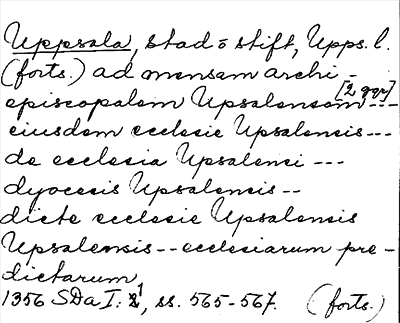 Uppsala, stad o stift, Upps. l.
(forts.) ad mensam archi-
episcopalem Upsalensem [2 ggr] ---
eiusdem ecclesie Upsalensis ---
de ecclesia Upsalensi ---
dyocesis Upsalensis --
dicte ecclesie Upsalensis
Upsalensis -- ecclesiarum pre-
dictarum,
1356 SDa I: 1, ss. 565-567. (forts.)